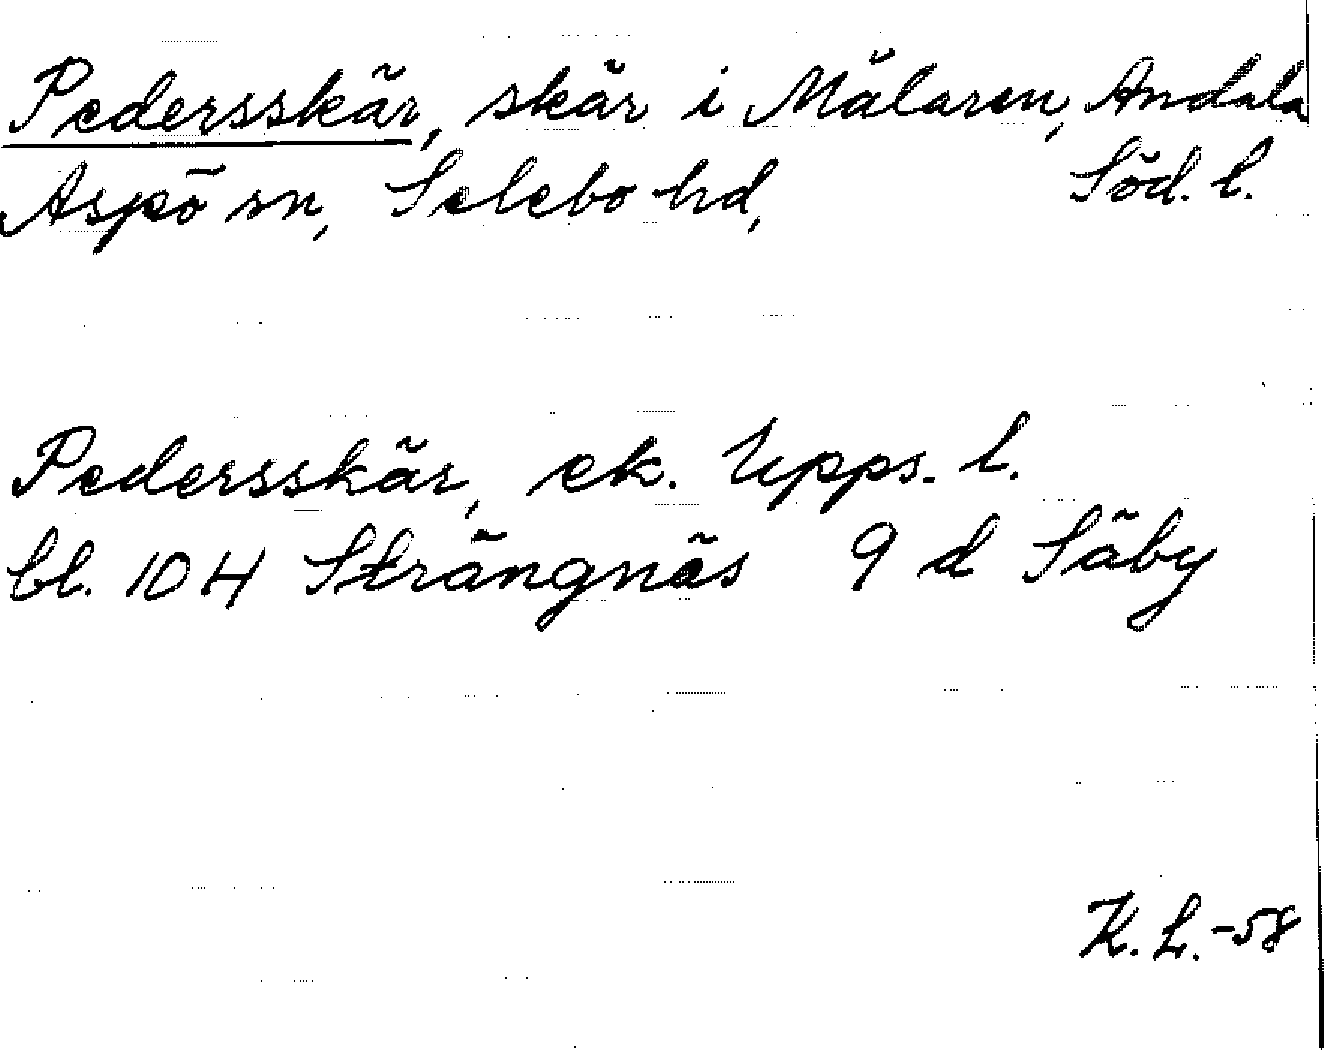 Pedersskär, skär i Mälaren, Andala
Aspö sn, Selebo hd, Söd. l.
Pedersskär, ek. Upps. l.
bl. 10 H Strängnäs 9 d Säby
K. L. -58